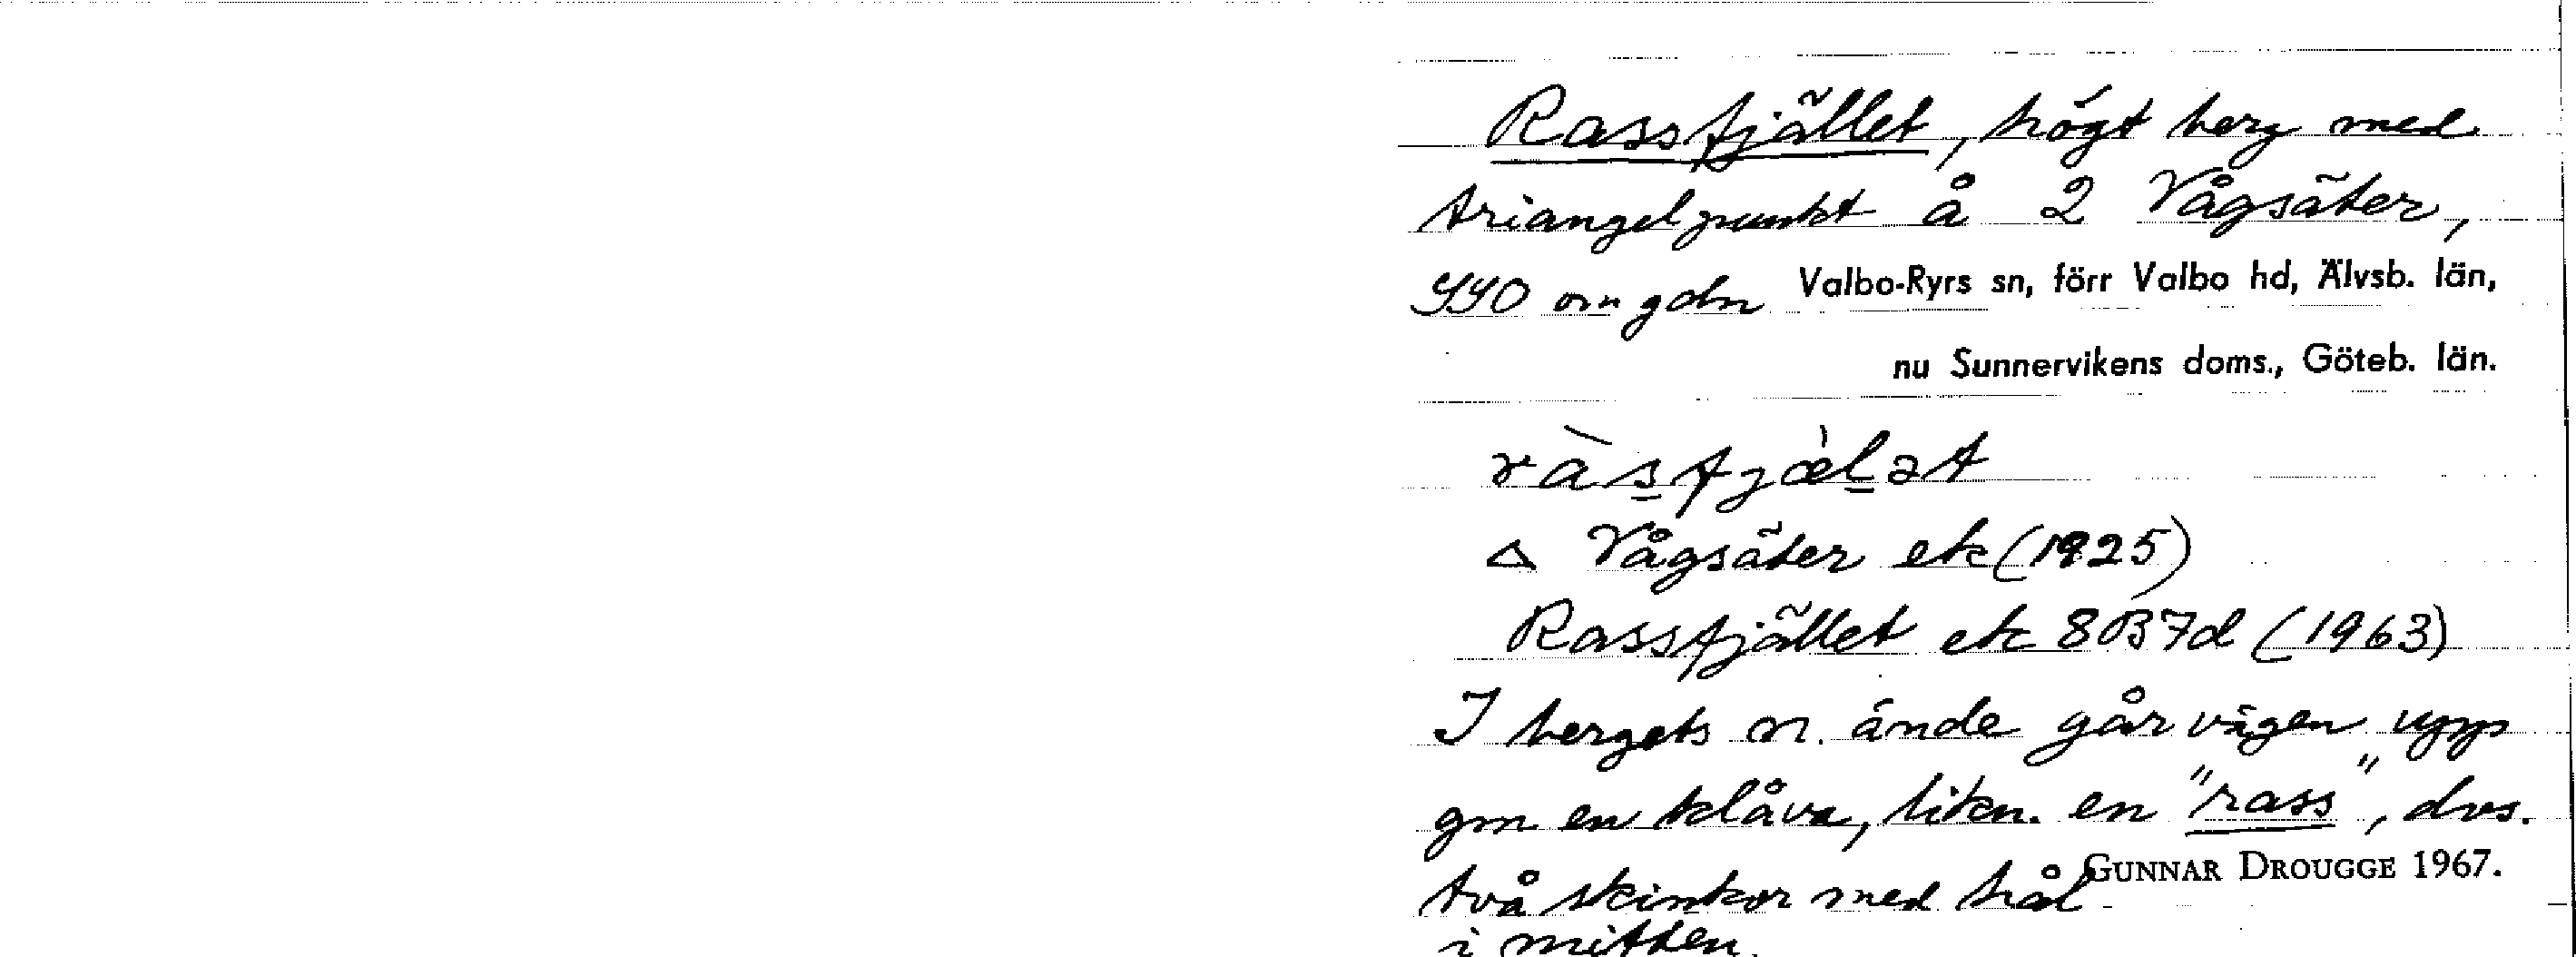 Rassfjället, högt berg med
triangelpunkt å 2 Vågsäter,
SSO om gdn Valbo-Ryrs sn, förr Valbo hd, Älvsb. län,
nu Sunnervikens doms., Göteb. län.
ràs̲fjæ̀l̲ət
△ Vågsäter ek (1925)
Rassfjället ek 8B7d (1963)
I bergets n. ände går vägen upp
gm en klåva, likn. en "rass", dvs.
två skinkor med hål
GUNNAR DROUGGE 1967.
i mitten.